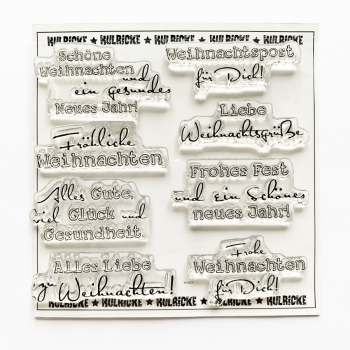 KULRICKE ★ KULRICKE ★ KULRICKE
Schöne
Weihnachten und
ein gesundes
Neues Jahr!
Fröhliche
Weihnachten
Alles Gute,
viel Glück und
Gesundheit.
Alles Liebe
zu Weihnachten!
Weihnachtspost
für Dich!
Liebe
Weihnachtsgrüße
Frohes Fest
und ein Schönes
neues Jahr!
Frohe
Weihnachten
für Dich!
KULRICKE ★ KULRICKE ★ KULRICKE ★ KULRICKE